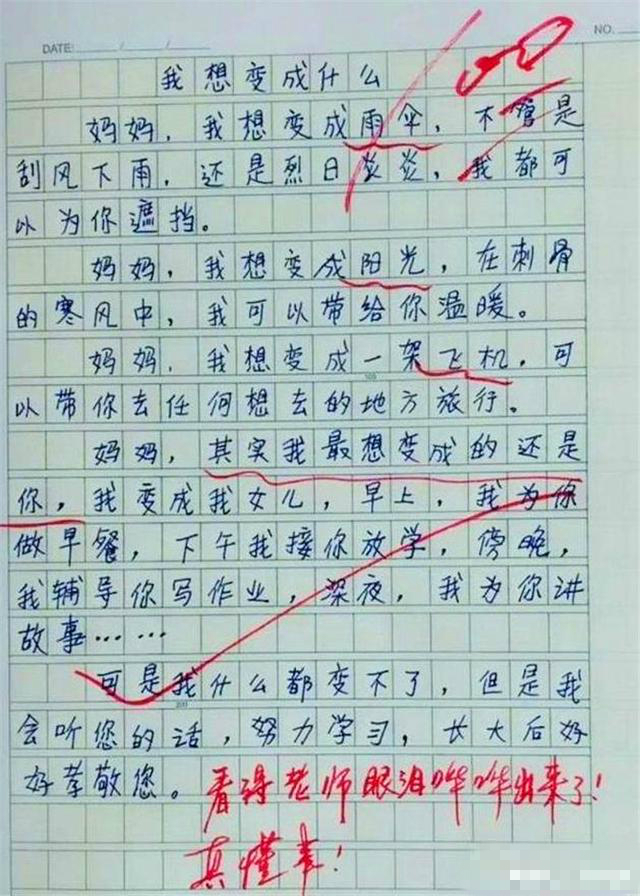 DATE: / /
NO.
100
我想变成什么
妈妈，我想变成雨伞，不管是
刮风下雨，还是烈日炎炎，我都可
以为你遮挡。
妈妈，我想变成阳光，在刺骨
的寒风中，我可以带给你温暖。
妈妈，我想变成一架飞机，可
以带你去任何想去的地方旅行。
妈妈，其实我最想变成的还是
你，我变成我女儿，早上，我为你
做早餐，下午我接你放学，傍晚，
我辅导你写作业，深夜，我为你讲
故事……
可是我什么都变不了，但是我
会听您的话，努力学习，长大后好
好孝敬您。看得老师眼泪哗哗出来了！
真懂事！